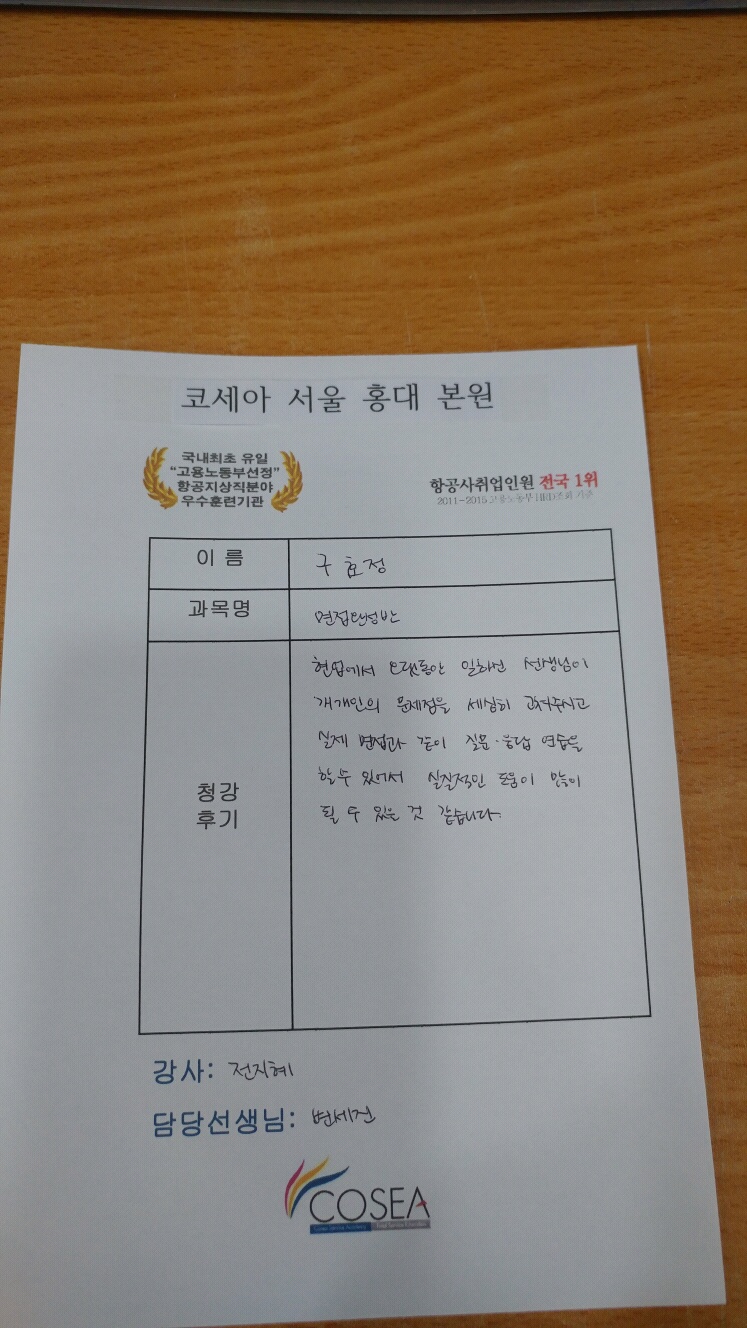 코세아 서울 홍대 본원
국내최초 유일
“고용노동부선정”
항공지상직분야
우수훈련기관
항공사취업인원 전국 1위
2011-2015 고용노동부 HRD조회 기준
이 름
구효정
과목명
면접완성반
청강
후기
현업에서 오랫동안 일하신 선생님이
개개인의 문제점을 세심히 고쳐주시고
실제 면접과 같이 질문·응답 연습을
할 수 있어서 실질적인 도움이 많이
될 수 있을 것 같습니다.
강사: 전지혜
담당선생님: 변세진
COSEA